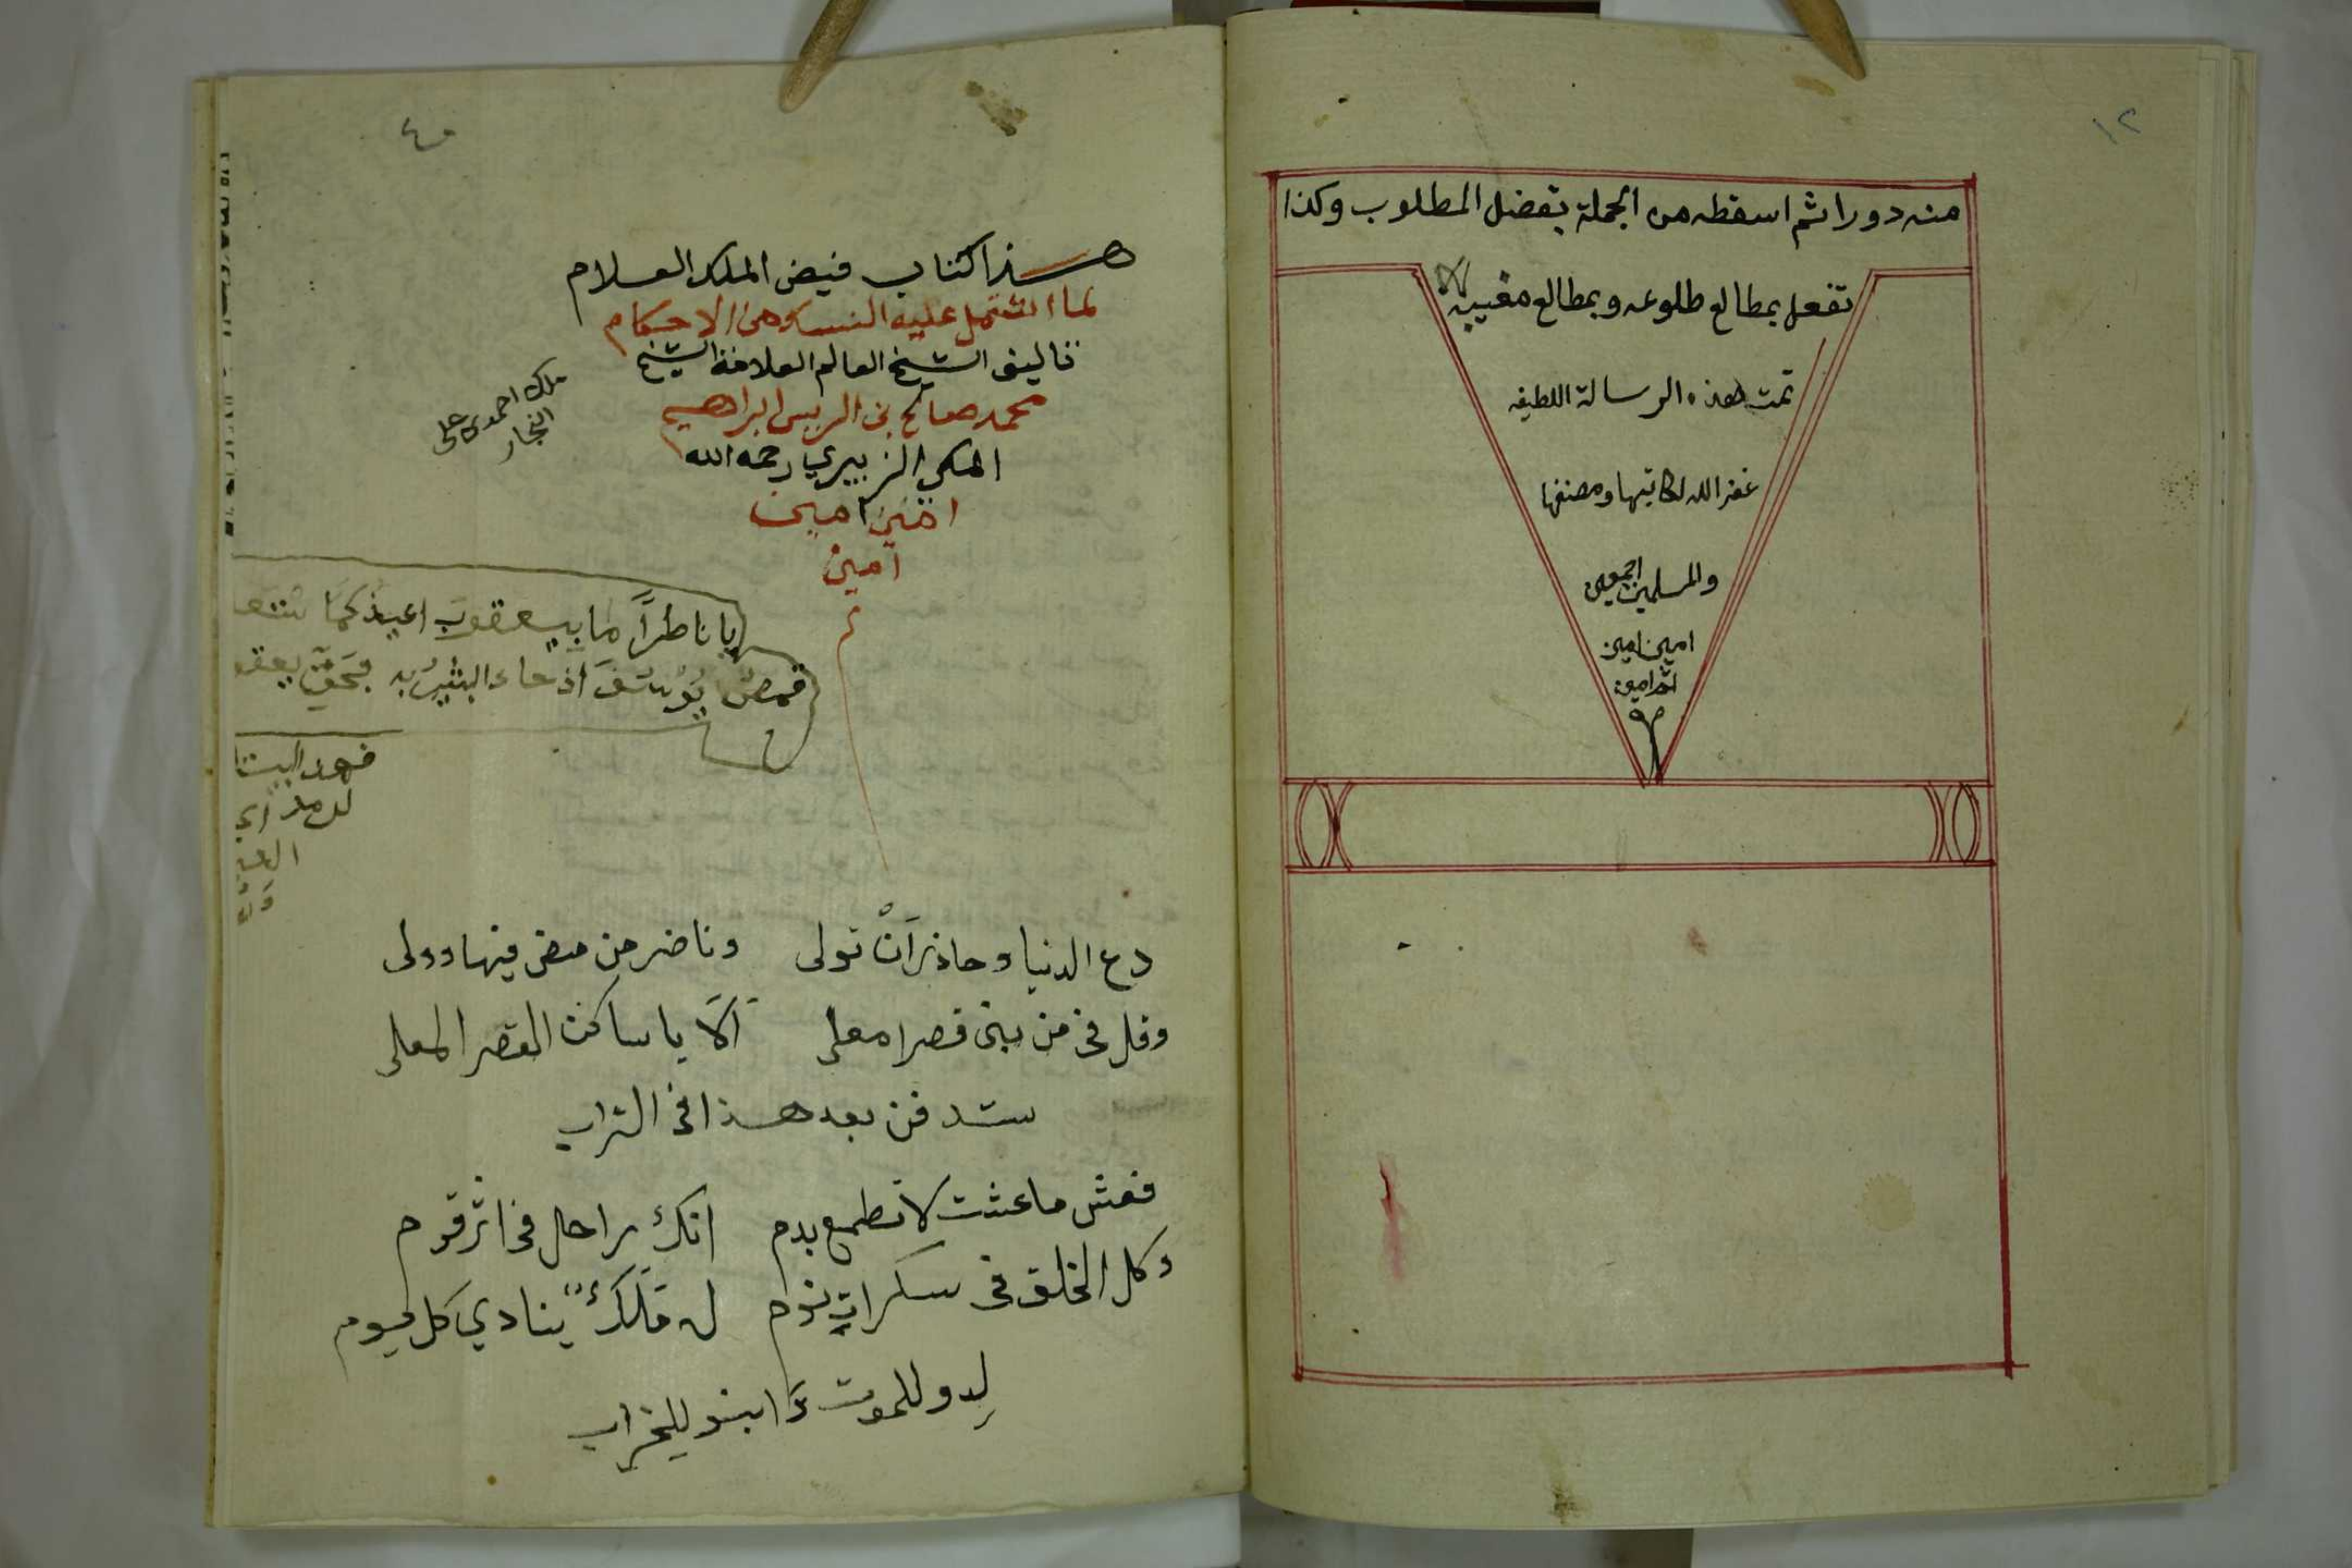 ١٢
منه دورا ثم اسقطه من الجملة يفضل المطلوب وكذا
تفعل بمطالع طلوعه وبمطالع مغيبه
تمت هذه الرسالة اللطيفه
غفر الله لكاتبها ومصنفها
والمسلمين اجمعين
امين امين
امين
هذا كتاب فيض الملك العلام
لما اشتمل عليه النسك من الاحكام
تاليف الشيخ العالم العلامة الشيخ
محمد صالح بن الريس ابراهيم
المكي الزبيري رحمه الله
امين امين
امين
م
ملك احمد على
النجار
يا ناظرا ما بيعقوب اعيذكما
قمص يوسف اذ جاء البشير به بحق يعقو
دع الدنيا وحاذر أن تولى وناضر من مضى فيها وولى
وقل في من بنى قصرا معلى ألا يا ساكن القصر المعلى
ستدفن بعد هذا في التراب
فعش ما عشت لا تطمع بدم انك راحل في اثر قوم
وكل الخلق في سكرات نوم له ملك ينادي كل يوم
لدو للموت وابنو للخراب